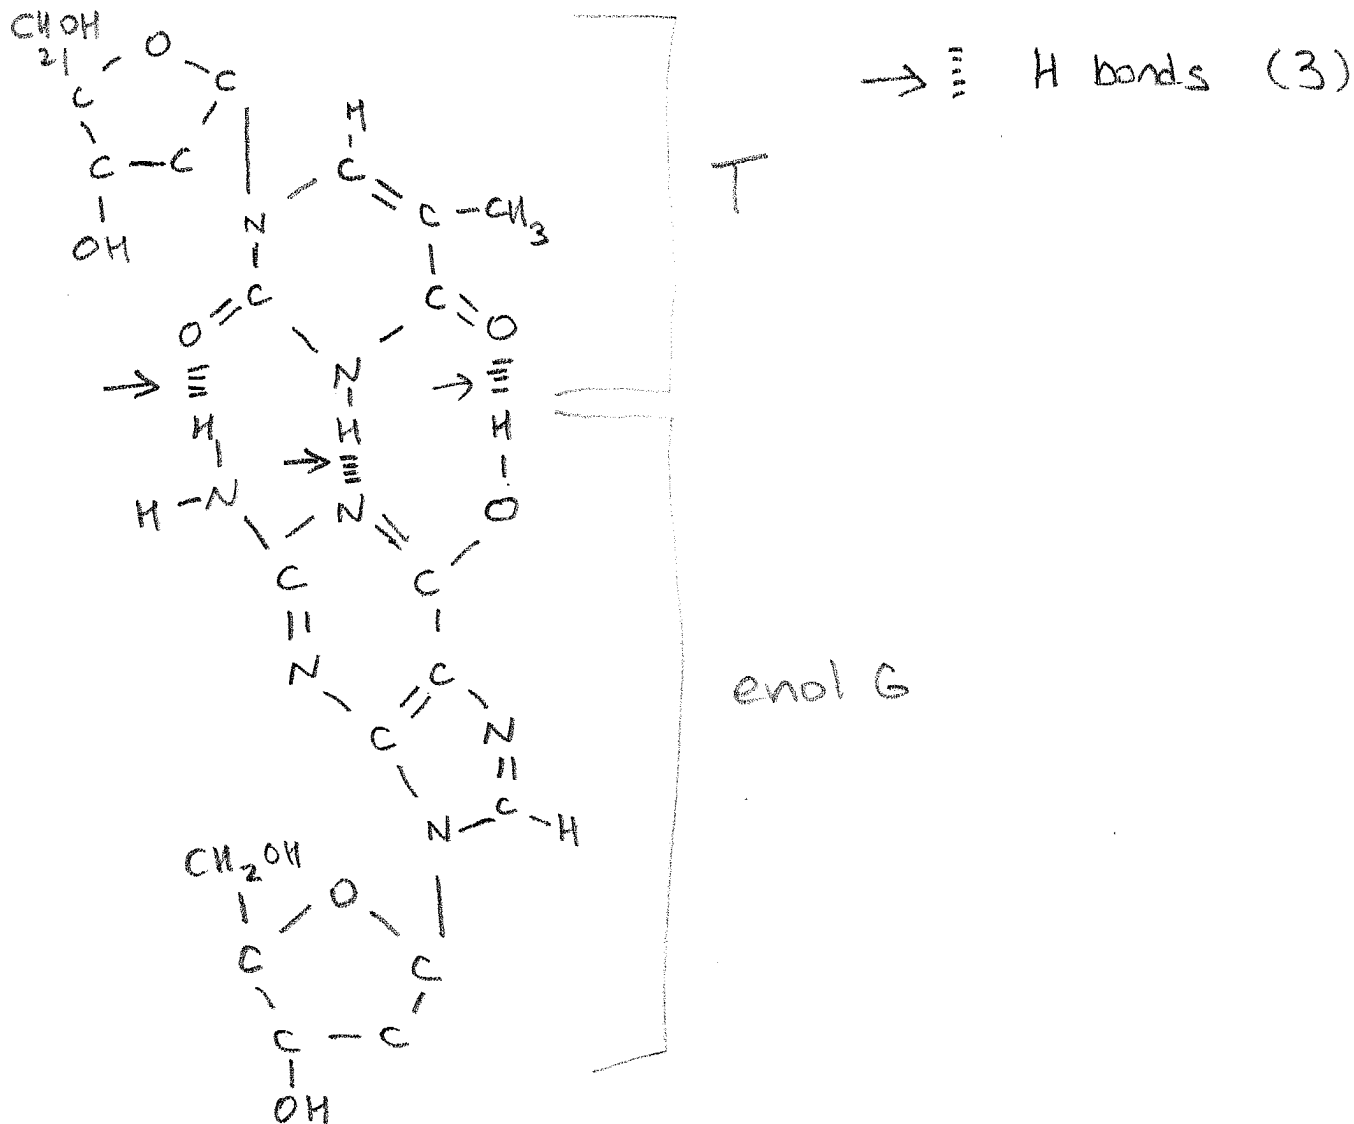 CH2OH
O
C
C
C
C
OH
H
C
N
C
CH3
C
C
O
O
N
H
H
H
H
N
N
O
C
C
N
C
C
N
C
H
N
CH2OH
O
C
C
C
C
OH
→ H bonds (3)
T
enol G